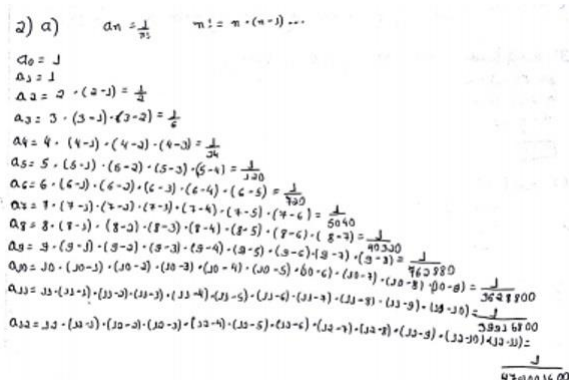 2) a) an = 1/n! n! = n · (n-1) ...
a0 = 1
a1 = 1
a2 = 2 · (2-1) = 1/2
a3 = 3 · (3-1) · (3-2) = 1/6
a4 = 4 · (4-1) · (4-2) · (4-3) = 1/24
a5 = 5 · (5-1) · (5-2) · (5-3) · (5-4) = 1/120
a6 = 6 · (6-1) · (6-2) · (6-3) · (6-4) · (6-5) = 1/720
a7 = 7 · (7-1) · (7-2) · (7-3) · (7-4) · (7-5) · (7-6) = 1/5040
a8 = 8 · (8-1) · (8-2) · (8-3) · (8-4) · (8-5) · (8-6) · (8-7) = 1/40320
a9 = 9 · (9-1) · (9-2) · (9-3) · (9-4) · (9-5) · (9-6) · (9-7) · (9-8) = 1/362880
a10 = 10 · (10-1) · (10-2) · (10-3) · (10-4) · (10-5) · (10-6) · (10-7) · (10-8) · (10-9) = 1/3628800
a11 = 11 · (11-1) · (11-2) · (11-3) · (11-4) · (11-5) · (11-6) · (11-7) · (11-8) · (11-9) · (11-10) = 1/39916800
a12 = 12 · (12-1) · (12-2) · (12-3) · (12-4) · (12-5) · (12-6) · (12-7) · (12-8) · (12-9) · (12-10) · (12-11) =
1/479001600